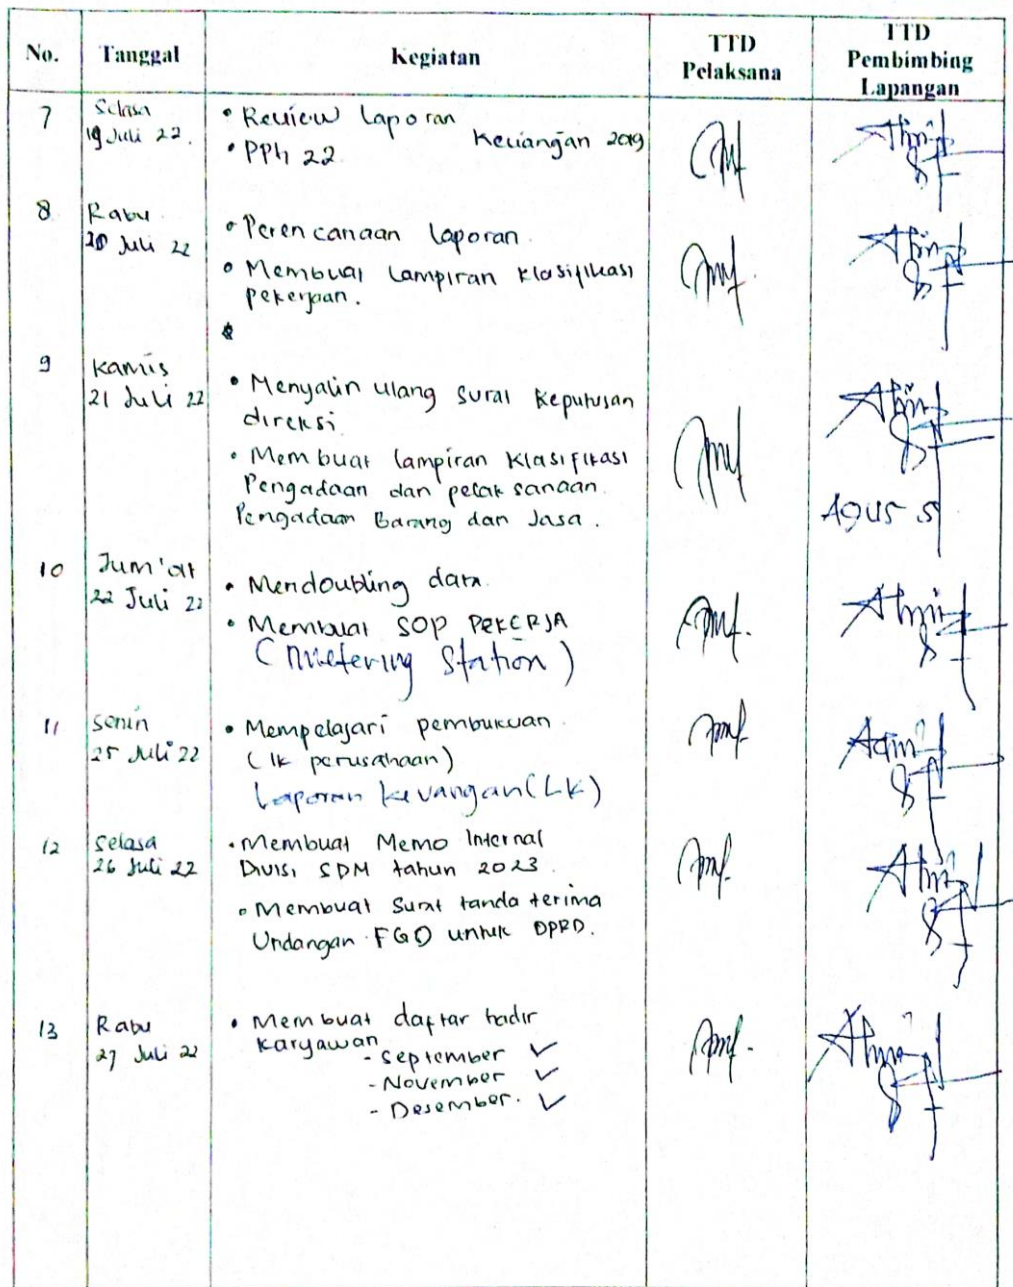 No. Tanggal Kegiatan TTD Pelaksana TTD Pembimbing Lapangan
7 Selasa 19 Juli 22.
• Review laporan Keuangan 2019
• PPh 22.
8 Rabu 20 Juli 22
• Perencanaan laporan.
• Membuat lampiran klasifikasi
pekerjaan.
9 Kamis 21 Juli 22
• Menyalin ulang surat keputusan
direksi
• Membuat lampiran klasifikasi
Pengadaan dan pelaksanaan.
Pengadaan Barang dan Jasa.
Agus S
10 Jum'at 22 Juli 22
• Mendoubling data.
• Membuat SOP PEKERJA
(Metering Station)
11 Senin 25 Juli 22
• Mempelajari pembukuan.
(lk perusahaan)
Laporan keuangan (LK)
12 Selasa 26 Juli 22
• Membuat Memo Internal
Divisi SDM tahun 2023.
• Membuat Surat tanda terima
Undangan FGD untuk DPRD.
13 Rabu 27 Juli 22
• Membuat daftar hadir
karyawan
- September ✓
- November ✓
- Desember. ✓